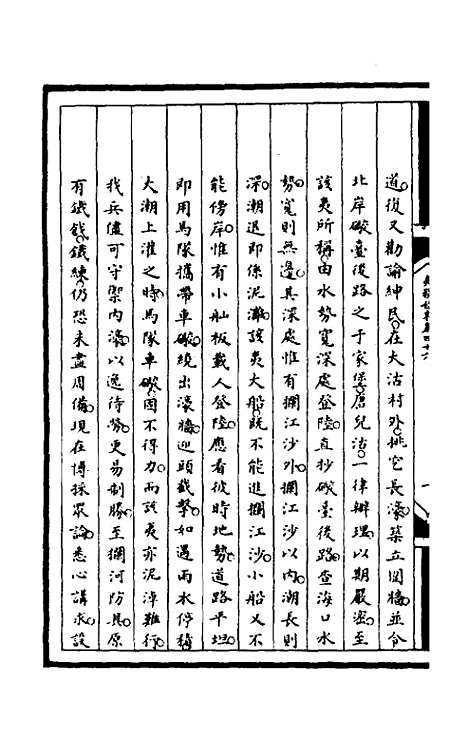 道復又勸諭紳民在大沽村外挑空長濠築立圍牆並令
北岸礮臺後路之于家堡唐兒沽一律辦理以期嚴密至
該夷所稱由水勢寬深處登陸直抄礮臺後路查海口水
勢寬則無邊其深處惟有攔江沙外攔江沙以內潮長則
深潮退即係泥灘該夷大船旣不能進攔江沙小船又不
能傍岸惟有小舢板載人登陸應看彼時地勢道路平坦
即用馬隊攜帶車礮繞出濠牆迎頭截擊如遇雨水停積
大潮上灌之時馬隊車礮固不得力而該夷亦泥淖難行
我兵儘可守禦內濠以逸待勞更易制勝至攔河防具原
有鐵戧鐵練仍恐未盡周備現在博採眾論悉心講求設